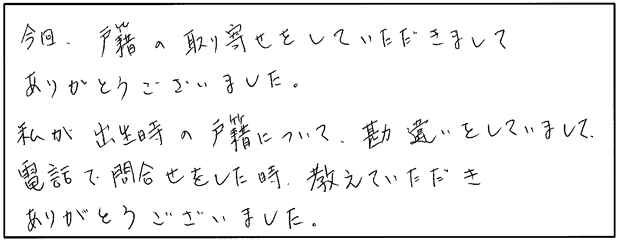 今回、戸籍の取り寄せをしていただきまして
ありがとうございました。
私が出生時の戸籍について、勘違いをしていまして、
電話で問合せをした時、教えていただき
ありがとうございました。